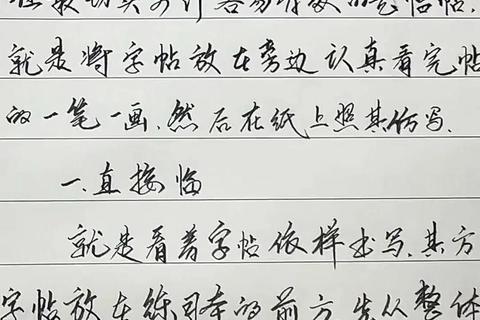 就是将字帖放在旁边认真看完帖
的一笔一画、然后在纸上照其仿写、
一、直接临
就是看着字帖依样书写、其方
字帖放在练习本的前方先从整体